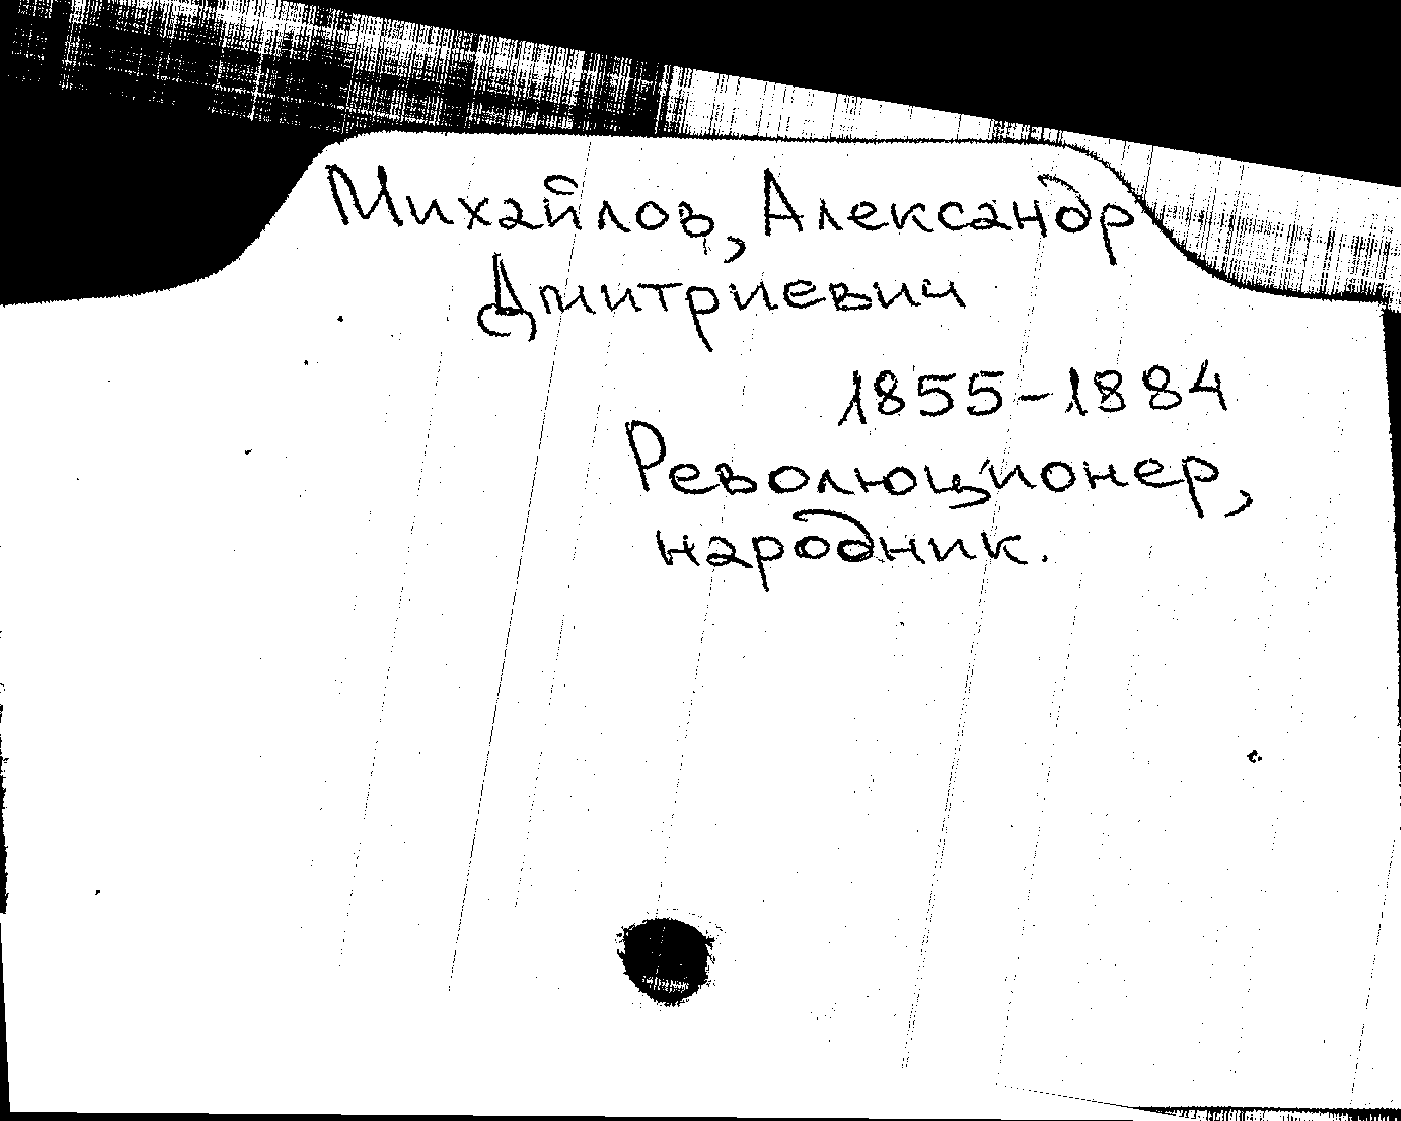 Михайлов, Александр
Дмитриевич
1855-1884
Революционер,
народник.